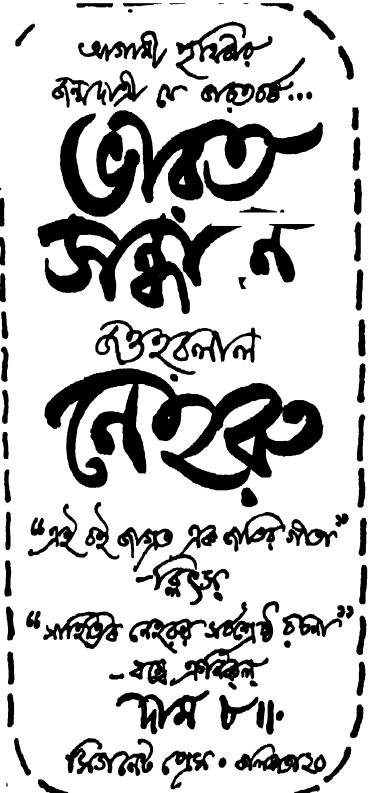 আগামী পৃথিবীর
জন্মদাত্রী যে ভারতবর্ষ...
ভারত
সন্ধানে
জওহরলাল
নেহরু
“এই বই জাগ্রত এক জাতির গীতা”
-ব্লিৎস
“সাহিত্যিক নেহরুর সর্বশ্রেষ্ঠ রচনা”
- বম্বে ক্রনিক্‌ল্
দাম ৮॥০
সিগনেট প্রেস • কলিকাতা ২০